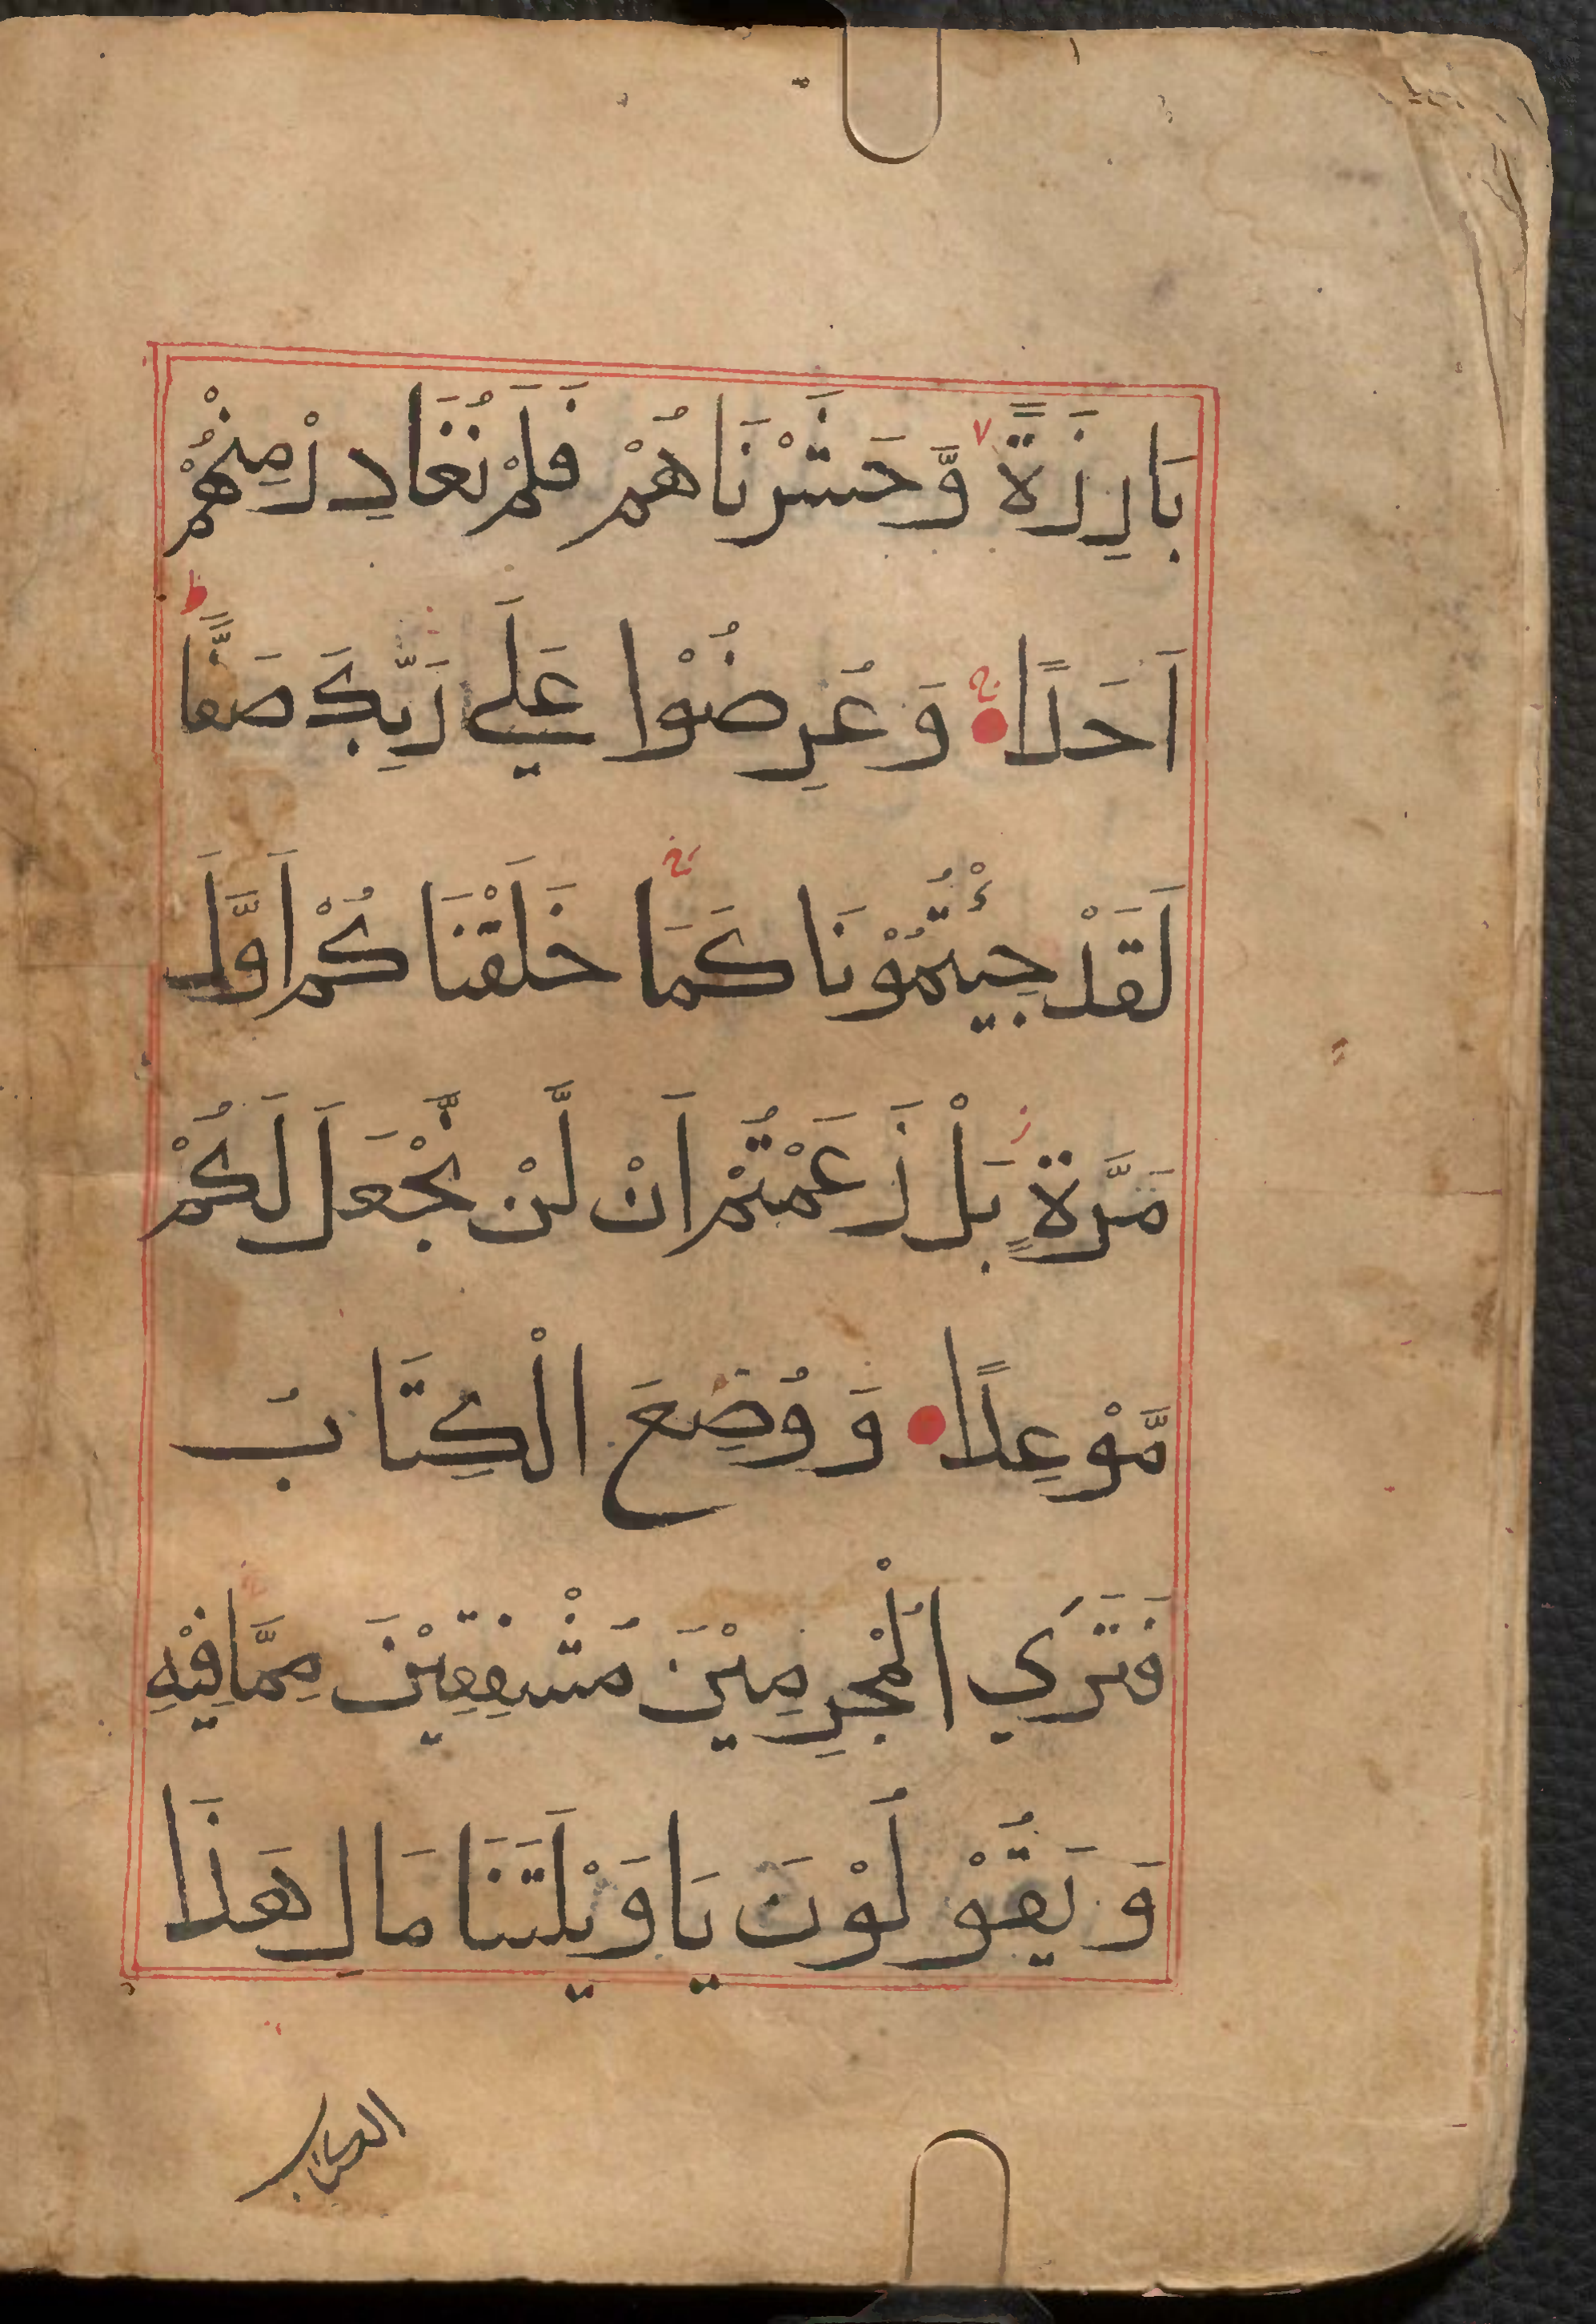 بَارِزَةً وَّحَشَرْنَاهُمْ فَلَمْ نُغَادِرْ مِنْهُمْ
اَحَدًا وَعُرِضُوْا عَلَي رَبِّكَ صَفًّا
لَقَدْ جِئْتُمُوْنَا كَمَا خَلَقْنَا كُمْ اَوَّلَ
مَرَّةٍ بَلْ زَعَمْتُمْ اَنْ لَّنْ نَّجْعَلَ لَكُمْ
مَّوْعِدًا وَوُضِعَ الْكِتَابُ
فَتَرَي الْمُجْرِمِيْنَ مُشْفِقِيْنَ مِمَّا فِيْهِ
وَيَقُوْلُوْنَ يَا وَيْلَتَنَا مَالِ هَذَا
الكتاب